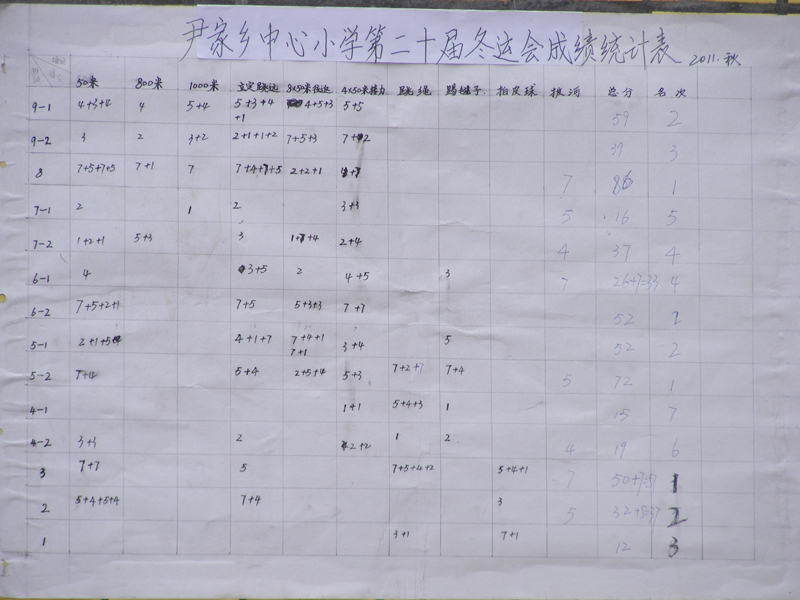 尹家乡中心小学第二十届冬运会成绩统计表 2011.秋
50米 800米 1000米 立定跳远 8x50米往返 4x50米接力 跳绳 踢毽子 拍皮球 拔河 总分 名次
9-1 4+3+4 4 5+4 5+3+4+1 4+5+3 5+5 59 2
9-2 3 2 3+2 2+1+1+2 7+5+3 39 3
8 7+5+7+5 7+1 7 7+4+7+5 2+2+1 7 86 1
7-1 2 1 2 3+3 5 16 5
7-2 1+2+1 5+3 3 1+7+4 2+4 4 37 4
6-1 4 3+5 2 4+5 3 7 26+7=33 4
6-2 7+5+2+1 7+5 5+3+3 7+7 52 2
5-1 2+1+5 4+1+7 7+4+1 3+4 5 52 2
7+1
5-2 7+4 5+4 2+5+4 5+3 7+2+7 7+4 5 72 1
4-1 1+1 5+4+3 1 15 7
4-2 3+3 2 2+2 1 2 4 19 6
3 7+7 5 7+5+4+2 5+4+1 7 50+7=57 1
2 5+4+5+4 7+4 3 5 32+5=37 2
1 3+1 7+1 12 3